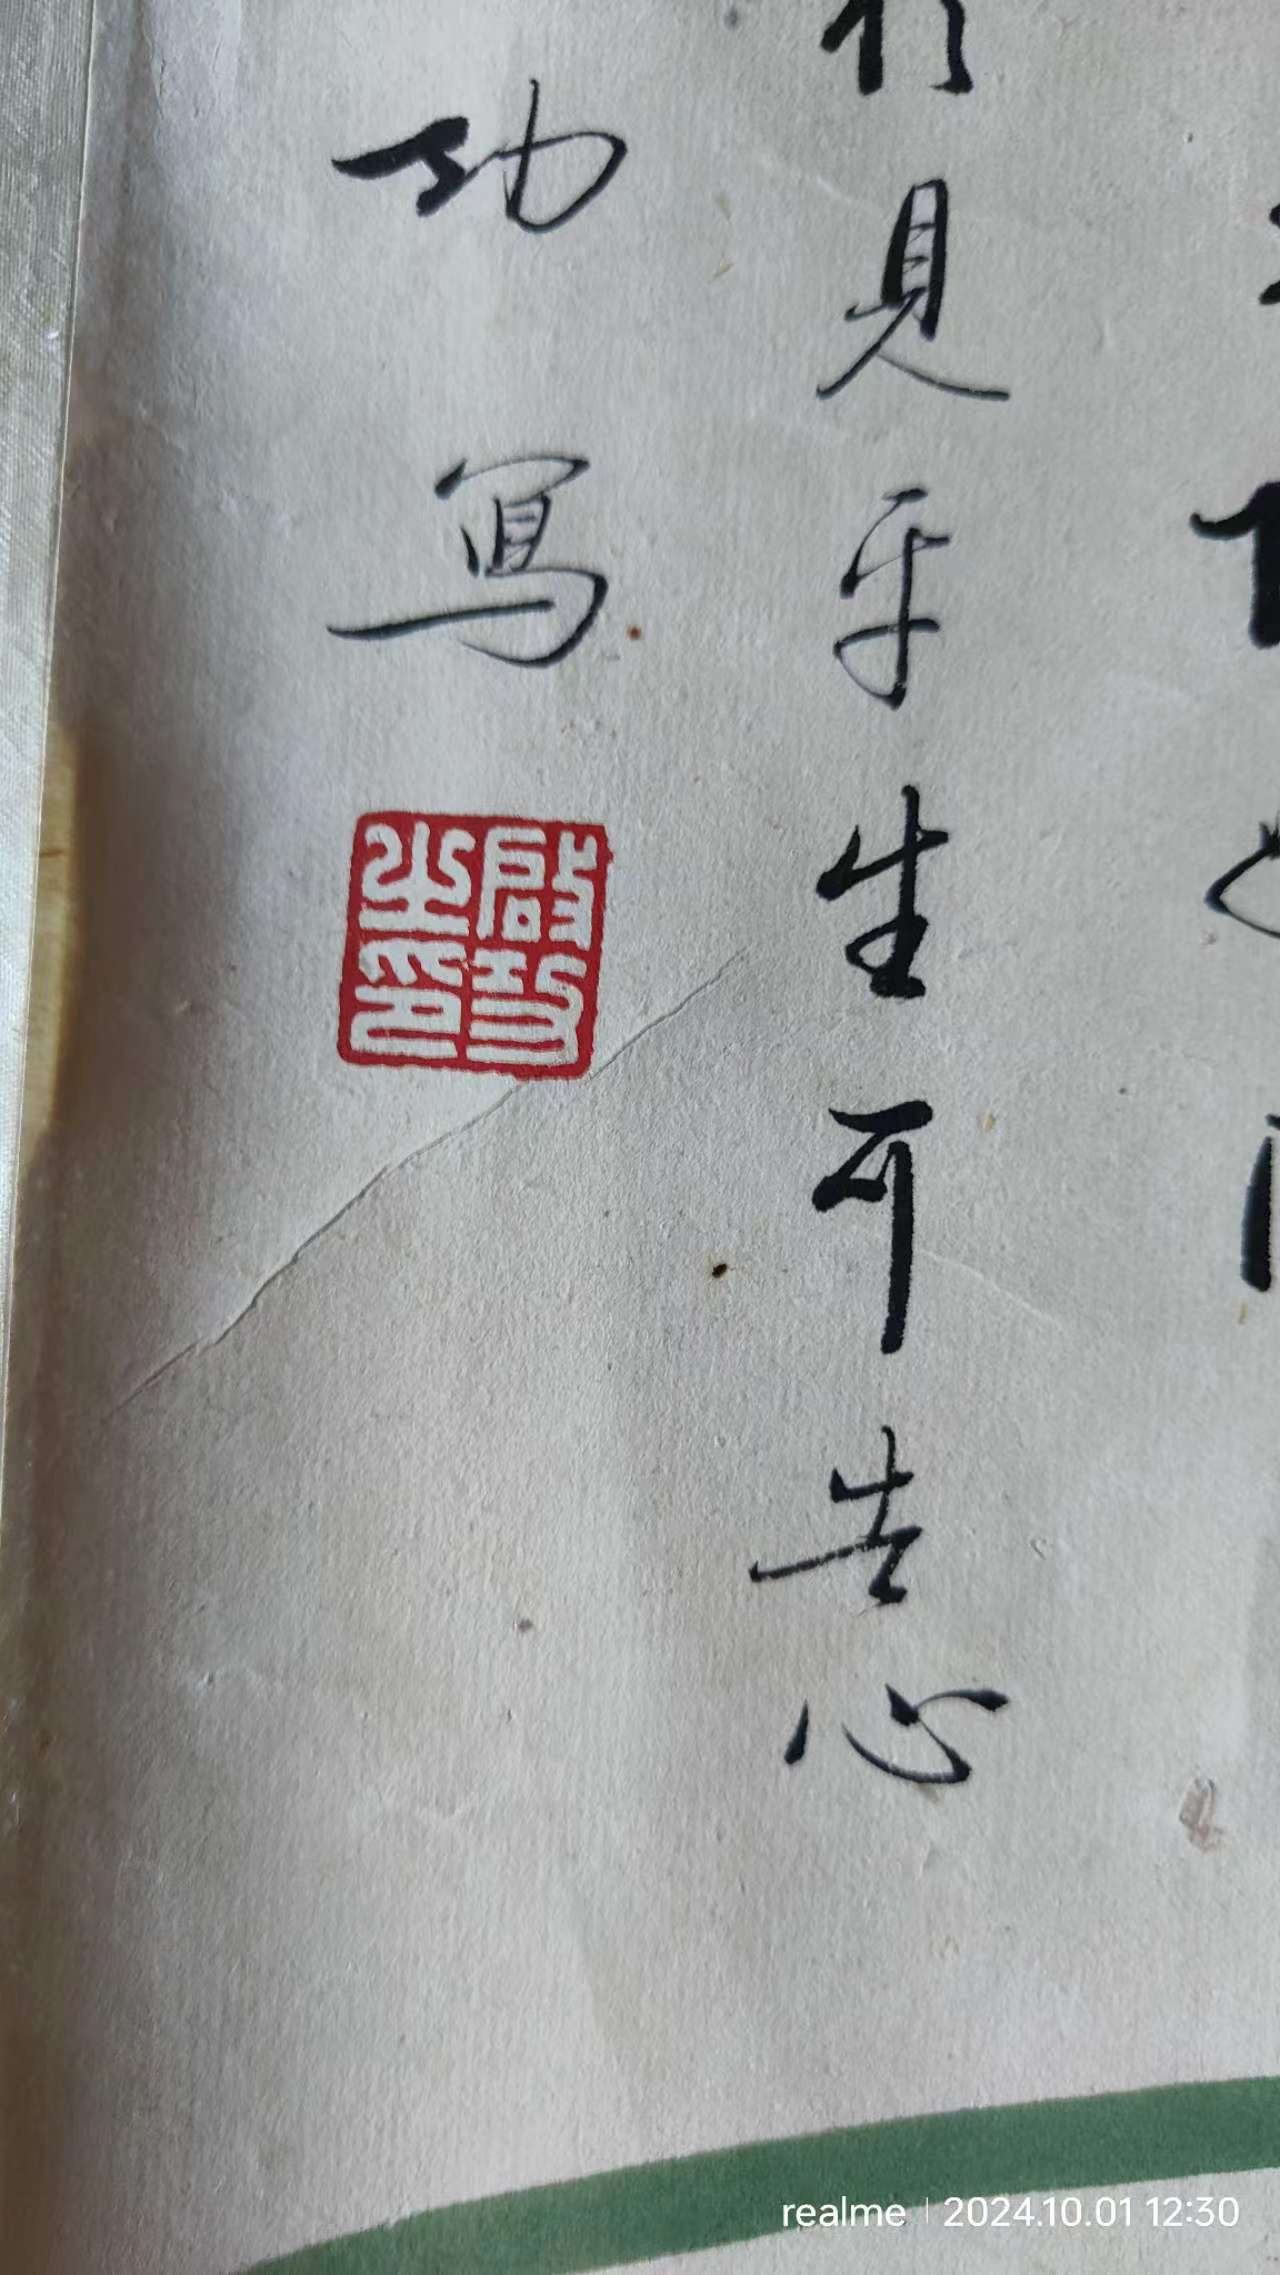 見平生可告心
功寫
啟功之印
realme 2024.10.01 12:30